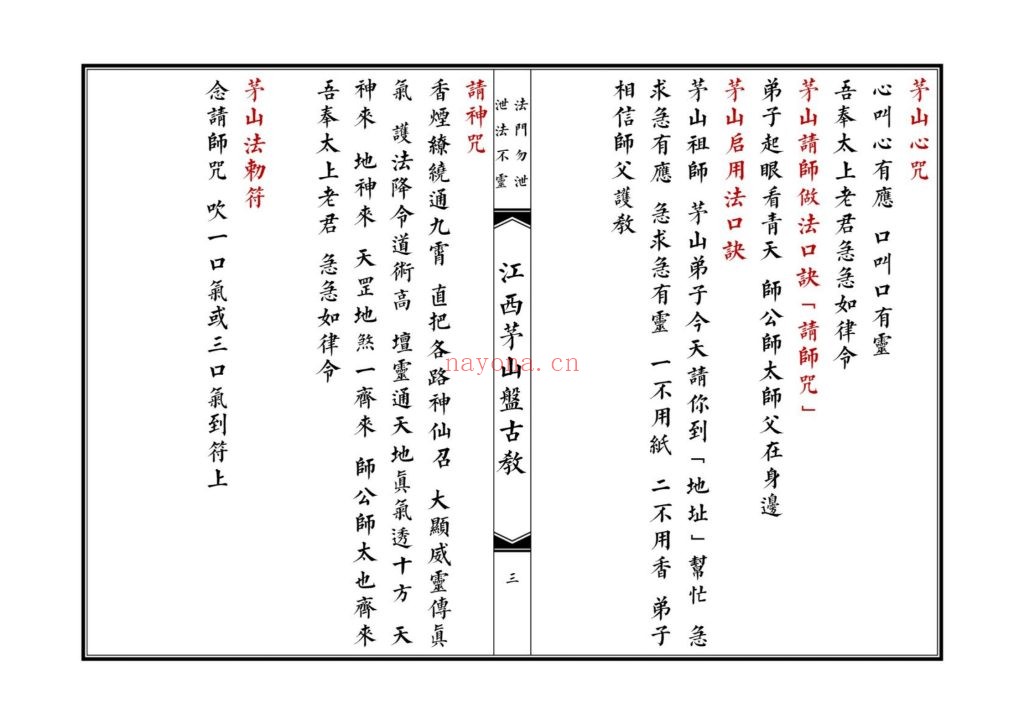 茅山心咒
心叫心有應 口叫口有靈
吾奉太上老君急急如律令
茅山請師做法口訣「請師咒」
弟子起眼看青天 師公師太師父在身邊
茅山启用法口訣
茅山祖師 茅山弟子今天請你到「地址」幫忙 急
求急有應 急求急有靈 一不用紙 二不用香 弟子
相信師父護教
法門勿泄
泄法不靈
江西茅山盤古教
三
請神咒
香煙繚繞通九霄 直把各路神仙召 大顯威靈傳眞
氣 護法降令道術高 壇靈通天地眞氣透十方 天
神來 地神來 天罡地煞一齊來 師公師太也齊來
吾奉太上老君 急急如律令
茅山法勅符
念請師咒 吹一口氣或三口氣到符上
nayona.cn